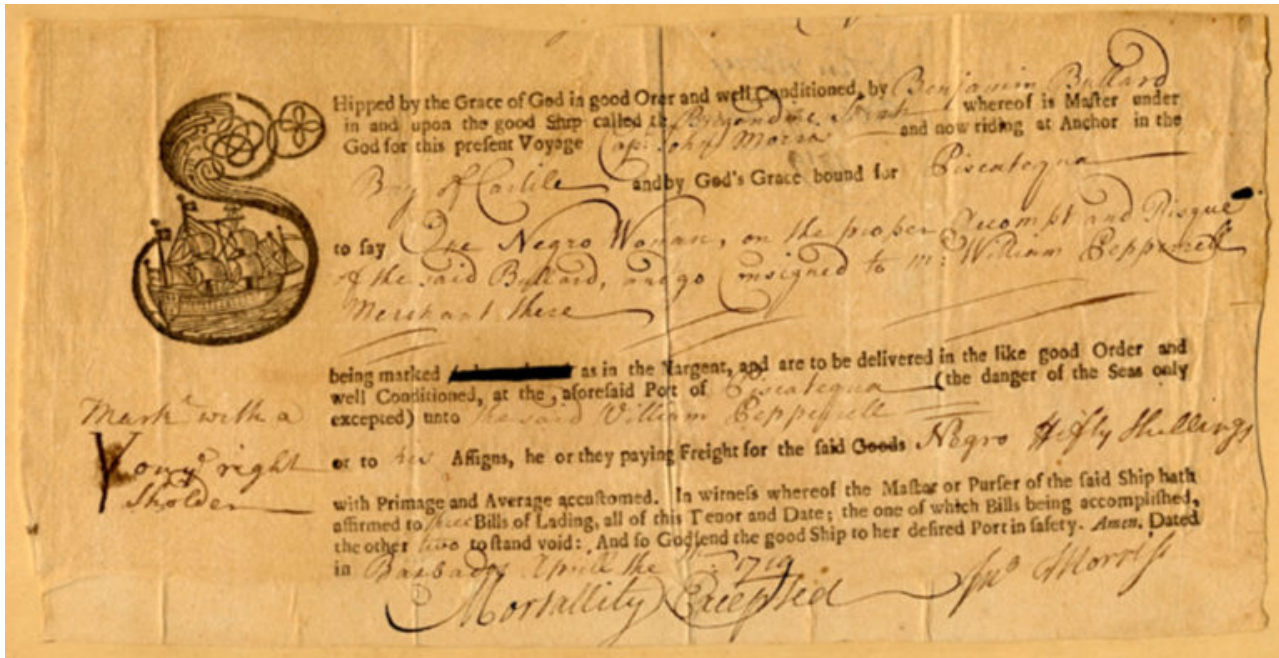 SHipped by the Grace of God in good Orer and well Conditioned, by Benjamin Bullard
in and upon the good Ship called the Brigandine Sarah whereof is Master under
God for this present Voyage Capt John Morris and now riding at Anchor in the
Bay of Carlile and by God's Grace bound for Piscatequa
to say One Negro Woman, on the proper Accompt and Risque
of the said Bullard, and go Consigned to Mr William Pepperell
Merchant there
being marked as in the Margent, and are to be delivered in the like good Order and
well Conditioned, at the aforesaid Port of Piscatequa (the danger of the Seas only
excepted) unto the said William Pepperell
Markd with a
Y on ye right
Sholder
or to his Assigns, he or they paying Freight for the said Goods Negro Fifty Shillings
with Primage and Average accustomed. In witness whereof the Mastar or Purser of the said Ship hath
affirmed to three Bills of Lading, all of this Tenor and Date; the one of which Bills being accomplished,
the other two to stand void: And so God send the good Ship to her desired Port in safety. Amen. Dated
in Barbados Aprill the 1719
Mortallity Excepted Jno Morris